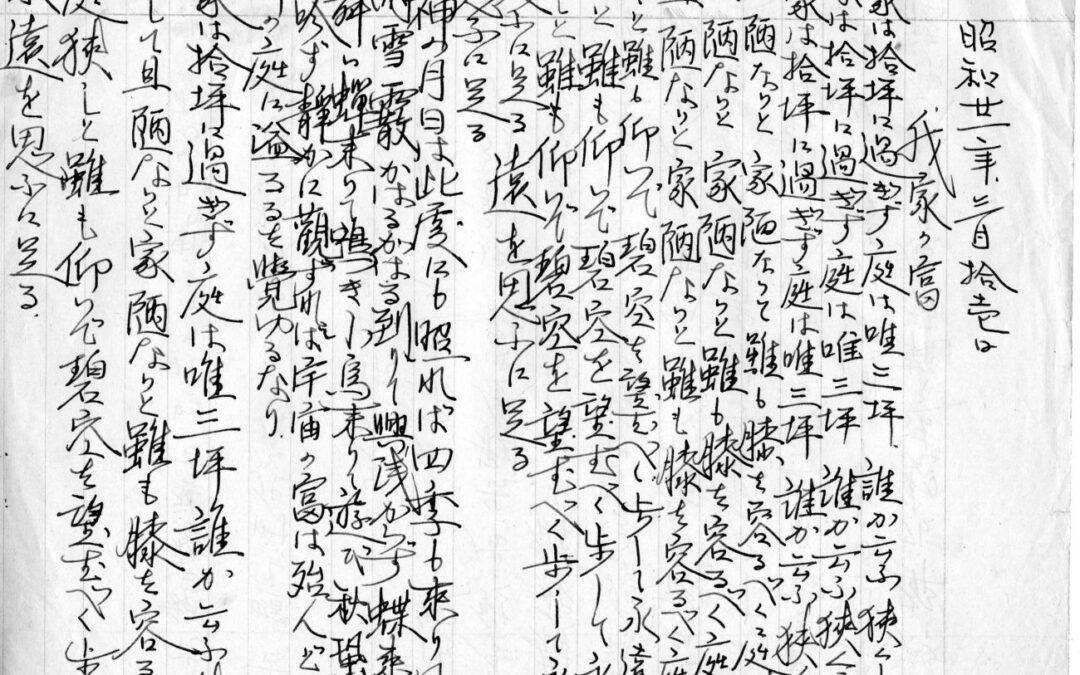 昭和廿二年三月拾壱日
我家の富
家は拾坪に過ぎず庭は唯三坪 誰か云ふ狭くし
家は拾坪に過ぎず庭は唯三坪 誰か云ふ狭く
家は拾坪に過ぎず庭は唯三坪、誰か云ふ狭く
陋なりと 家陋なりと雖も膝を容るべく庭
陋なりと 家陋なりと雖も膝を容るべく庭
陋なりと家陋なりと雖も膝を容るべく庭
と雖も仰いで碧空を望むべし歩して永遠
と雖も仰いで碧空を望むべく歩して
と雖も仰いで碧空を望むべく歩して
ふに足る 遠を思ふに足る
ふに足る
神の月日は此処にも照れば四季も来り
雨雪霰かはるかはる到りて興浅からず蝶来
舞ひ蝉来りて鳴き小鳥来り遊び秋蛩
吟ず静かに観ずれば宇宙の富は殆んど
の庭に溢るるを覚ゆるなり
家は拾坪に過ぎず庭は唯三坪 誰か云ふ
して且陋なりと家陋なりと雖も膝を容る
庭狭しと雖も仰いで碧空を望むべく歩
永遠を思ふに足る